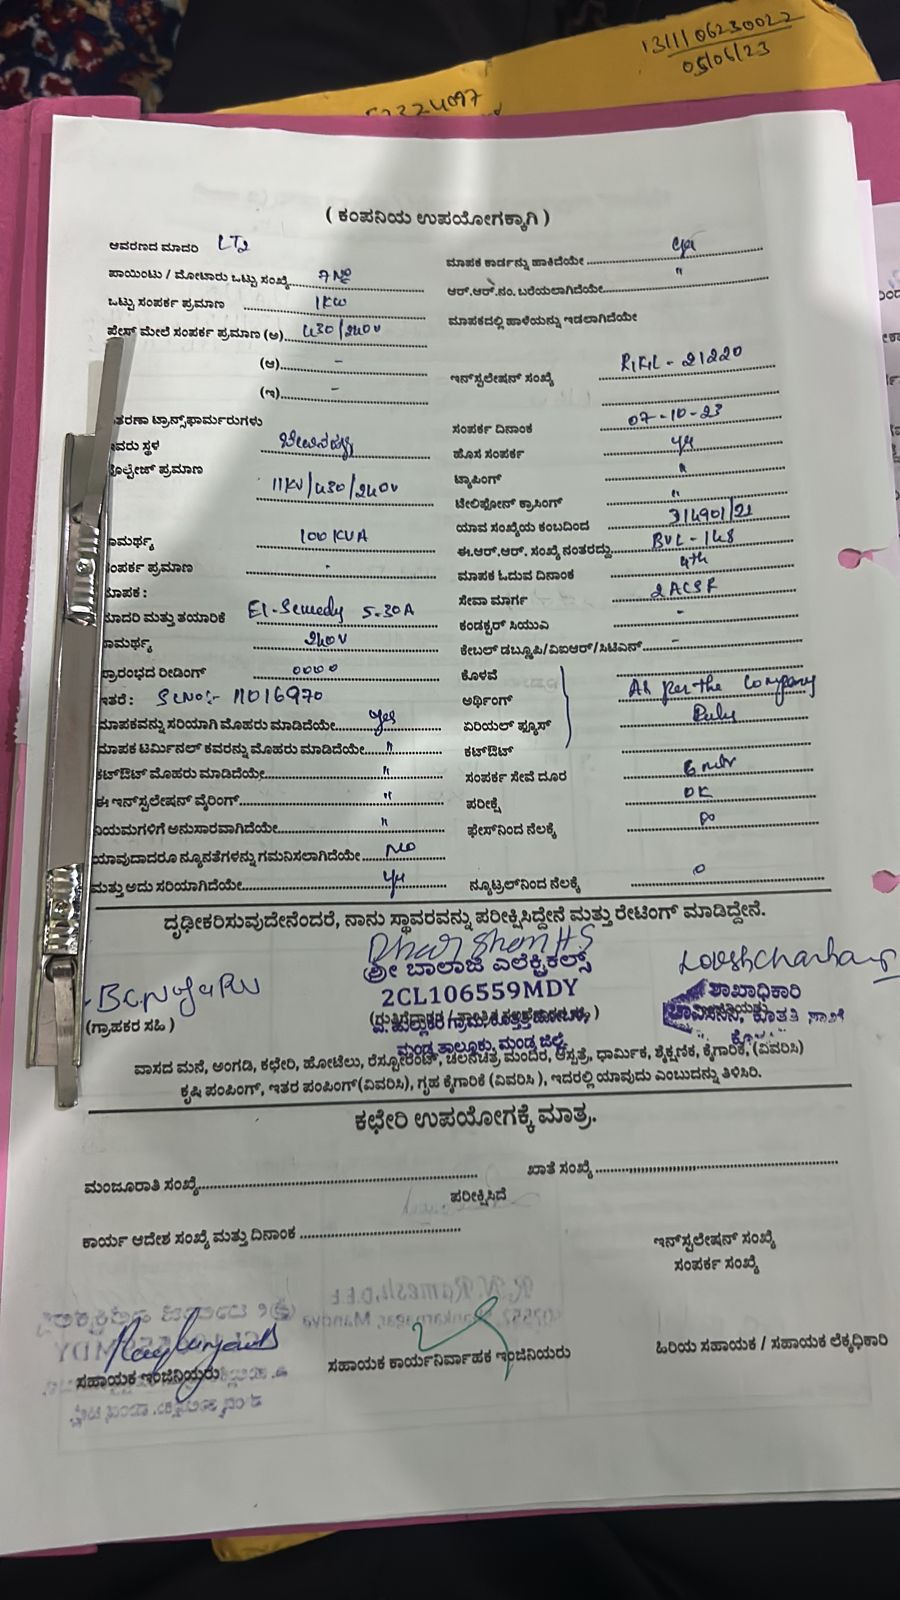 1311106230022
05/06/23
( ಕಂಪನಿಯ ಉಪಯೋಗಕ್ಕಾಗಿ )
ಆವರಣದ ಮಾದರಿ LT2
ಪಾಯಿಂಟು / ಮೋಟಾರು ಒಟ್ಟು ಸಂಖ್ಯೆ 7 No
ಒಟ್ಟು ಸಂಪರ್ಕ ಪ್ರಮಾಣ 1KW
ಫೇಸ್ ಮೇಲೆ ಸಂಪರ್ಕ ಪ್ರಮಾಣ (ಅ) 430/240V
(ಆ) -
(ಇ) -
ತರಣಾ ಟ್ರಾನ್ಸ್‌ಫಾರ್ಮರುಗಳು
ವರು ಸ್ಥಳ
ವೋಲ್ಟೇಜ್ ಪ್ರಮಾಣ
11KV/430/240V
ಾಮರ್ಥ್ಯ 100 KVA
ಸಂಪರ್ಕ ಪ್ರಮಾಣ -
ಮಾಪಕ :
ಮಾದರಿ ಮತ್ತು ತಯಾರಿಕೆ 5-30A
ಾಮರ್ಥ್ಯ 240V
ಪ್ರಾರಂಭದ ರೀಡಿಂಗ್ 0000
ಇತರೆ : SLNO:- 11016970
ಮಾಪಕವನ್ನು ಸರಿಯಾಗಿ ಮೊಹರು ಮಾಡಿದೆಯೇ yes
ಮಾಪಕ ಟರ್ಮಿನಲ್ ಕವರನ್ನು ಮೊಹರು ಮಾಡಿದೆಯೇ "
ಕಟ್‌ಔಟ್ ಮೊಹರು ಮಾಡಿದೆಯೇ "
ಈ ಇನ್‌ಸ್ಟಲೇಷನ್ ವೈರಿಂಗ್ "
ನಿಯಮಗಳಿಗೆ ಅನುಸಾರವಾಗಿದೆಯೇ "
ಯಾವುದಾದರೂ ನ್ಯೂನತೆಗಳನ್ನು ಗಮನಿಸಲಾಗಿದೆಯೇ No
ಮತ್ತು ಅದು ಸರಿಯಾಗಿದೆಯೇ yes
ಮಾಪಕ ಕಾರ್ಡನ್ನು ಹಾಕಿದೆಯೇ yes
ಆರ್.ಆರ್.ನಂ. ಬರೆಯಲಾಗಿದೆಯೇ "
ಮಾಪಕದಲ್ಲಿ ಹಾಳೆಯನ್ನು ಇಡಲಾಗಿದೆಯೇ
ಇನ್‌ಸ್ಟಲೇಷನ್ ಸಂಖ್ಯೆ 21220
ಸಂಪರ್ಕ ದಿನಾಂಕ 07-10-23
ಹೊಸ ಸಂಪರ್ಕ yes
ಟ್ಯಾಪಿಂಗ್ "
ಟೇಲಿಫೋನ್ ಕ್ರಾಸಿಂಗ್ "
ಯಾವ ಸಂಖ್ಯೆಯ ಕಂಬದಿಂದ 314901/21
ಈ.ಆರ್.ಆರ್. ಸಂಖ್ಯೆ ನಂತರದ್ದು BVL-148
ಮಾಪಕ ಓದುವ ದಿನಾಂಕ 4th
ಸೇವಾ ಮಾರ್ಗ 2ACSR
ಕಂಡಕ್ಟರ್ ಸಿಯುವಿ -
ಕೇಬಲ್ ಡಬ್ಲೂಪಿ/ವಿಐಆರ್/ಸಿಟಿಎನ್ -
ಕೊಳವೆ
ಅರ್ಥಿಂಗ್ As per the Company
ಏರಿಯೆಲ್ ಫ್ಯೂಸ್ Rules
ಕಟ್‌ಔಟ್
ಸಂಪರ್ಕ ಸೇವೆ ದೂರ 6 mtr
ಪರೀಕ್ಷೆ OK
ಫೇಸ್‌ನಿಂದ ನೆಲಕ್ಕೆ
ನ್ಯೂಟ್ರಲ್‌ನಿಂದ ನೆಲಕ್ಕೆ 0
ದೃಢೀಕರಿಸುವುದೇನೆಂದರೆ, ನಾನು ಸ್ಥಾವರವನ್ನು ಪರೀಕ್ಷಿಸಿದ್ದೇನೆ ಮತ್ತು ರೇಟಿಂಗ್ ಮಾಡಿದ್ದೇನೆ.
(ಗ್ರಾಹಕರ ಸಹಿ )
ಶ್ರೀ ಬಾಲಾಜಿ ಎಲೆಕ್ಟ್ರಿಕಲ್ಸ್
2CL106559MDY
ಮಂಡ್ಯ ತಾಲ್ಲೂಕು, ಮಂಡ್ಯ ಜಿಲ್ಲೆ.
ಶಾಖಾಧಿಕಾರಿ
ವಾಸದ ಮನೆ, ಅಂಗಡಿ, ಕಛೇರಿ, ಹೋಟೆಲು, ರೆಸ್ಟೋರೆಂಟ್, ಚಲನಚಿತ್ರ ಮಂದಿರ, ಆಸ್ಪತ್ರೆ, ಧಾರ್ಮಿಕ, ಶೈಕ್ಷಣಿಕ, ಕೈಗಾರಿಕೆ, (ವಿವರಿಸಿ)
ಕೃಷಿ ಪಂಪಿಂಗ್, ಇತರ ಪಂಪಿಂಗ್(ವಿವರಿಸಿ), ಗೃಹ ಕೈಗಾರಿಕೆ (ವಿವರಿಸಿ ), ಇದರಲ್ಲಿ ಯಾವುದು ಎಂಬುದನ್ನು ತಿಳಿಸಿರಿ.
ಕಛೇರಿ ಉಪಯೋಗಕ್ಕೆ ಮಾತ್ರ.
ಮಂಜೂರಾತಿ ಸಂಖ್ಯೆ
ಖಾತೆ ಸಂಖ್ಯೆ
ಪರೀಕ್ಷಿಸಿದೆ
ಕಾರ್ಯ ಆದೇಶ ಸಂಖ್ಯೆ ಮತ್ತು ದಿನಾಂಕ
ಇನ್‌ಸ್ಟಲೇಷನ್ ಸಂಖ್ಯೆ
ಸಂಪರ್ಕ ಸಂಖ್ಯೆ
ಸಹಾಯಕ ಇಂಜಿನಿಯರು
ಸಹಾಯಕ ಕಾರ್ಯನಿರ್ವಾಹಕ ಇಂಜಿನಿಯರು
ಹಿರಿಯ ಸಹಾಯಕ / ಸಹಾಯಕ ಲೆಕ್ಕಧಿಕಾರಿ